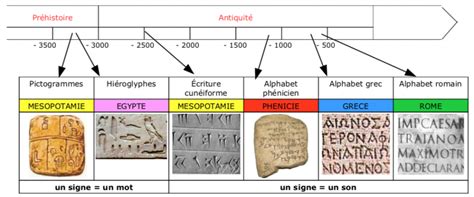 Préhistoire Antiquité
- 3500 - 3000 - 2500 - 2000 - 1500 - 1000 - 500
Pictogrammes Hiéroglyphes Écriture cunéiforme Alphabet phénicien Alphabet grec Alphabet romain
MESOPOTAMIE EGYPTE MESOPOTAMIE PHENICIE GRECE ROME
ΑΙΩΝΟΣ IMPCAESAR
ΓΕΡΟΝΑ TRAIANO
MAXIMOTR
ΝΟΜΕΝΟ ADDECLARAN
un signe = un mot un signe = un son